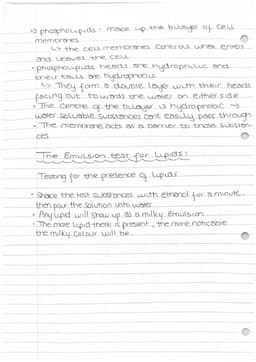 phospholipids: make up the bilayer of cell
membranes
↳ the cell membranes controls what enters
and leaves the cell
• phospholipids heads are hydrophilic and
their tails are hydrophobic
↳ They form a double layer with their heads
facing out towards the water on either side
• The centre of the bilayer is hydrophobic →
water soluable substances cant easily pass through
• The membrane acts as a barrier to those substan-
ces
The Emulsion test for Lipids:
Testing for the presence of lipids
• Shake the test substances with ethanol for a minute,
then pour the solution into water
• Any lipid will show up as a milky Emulsion
• The more lipid there is present, the more noticable
the milky colour will be.